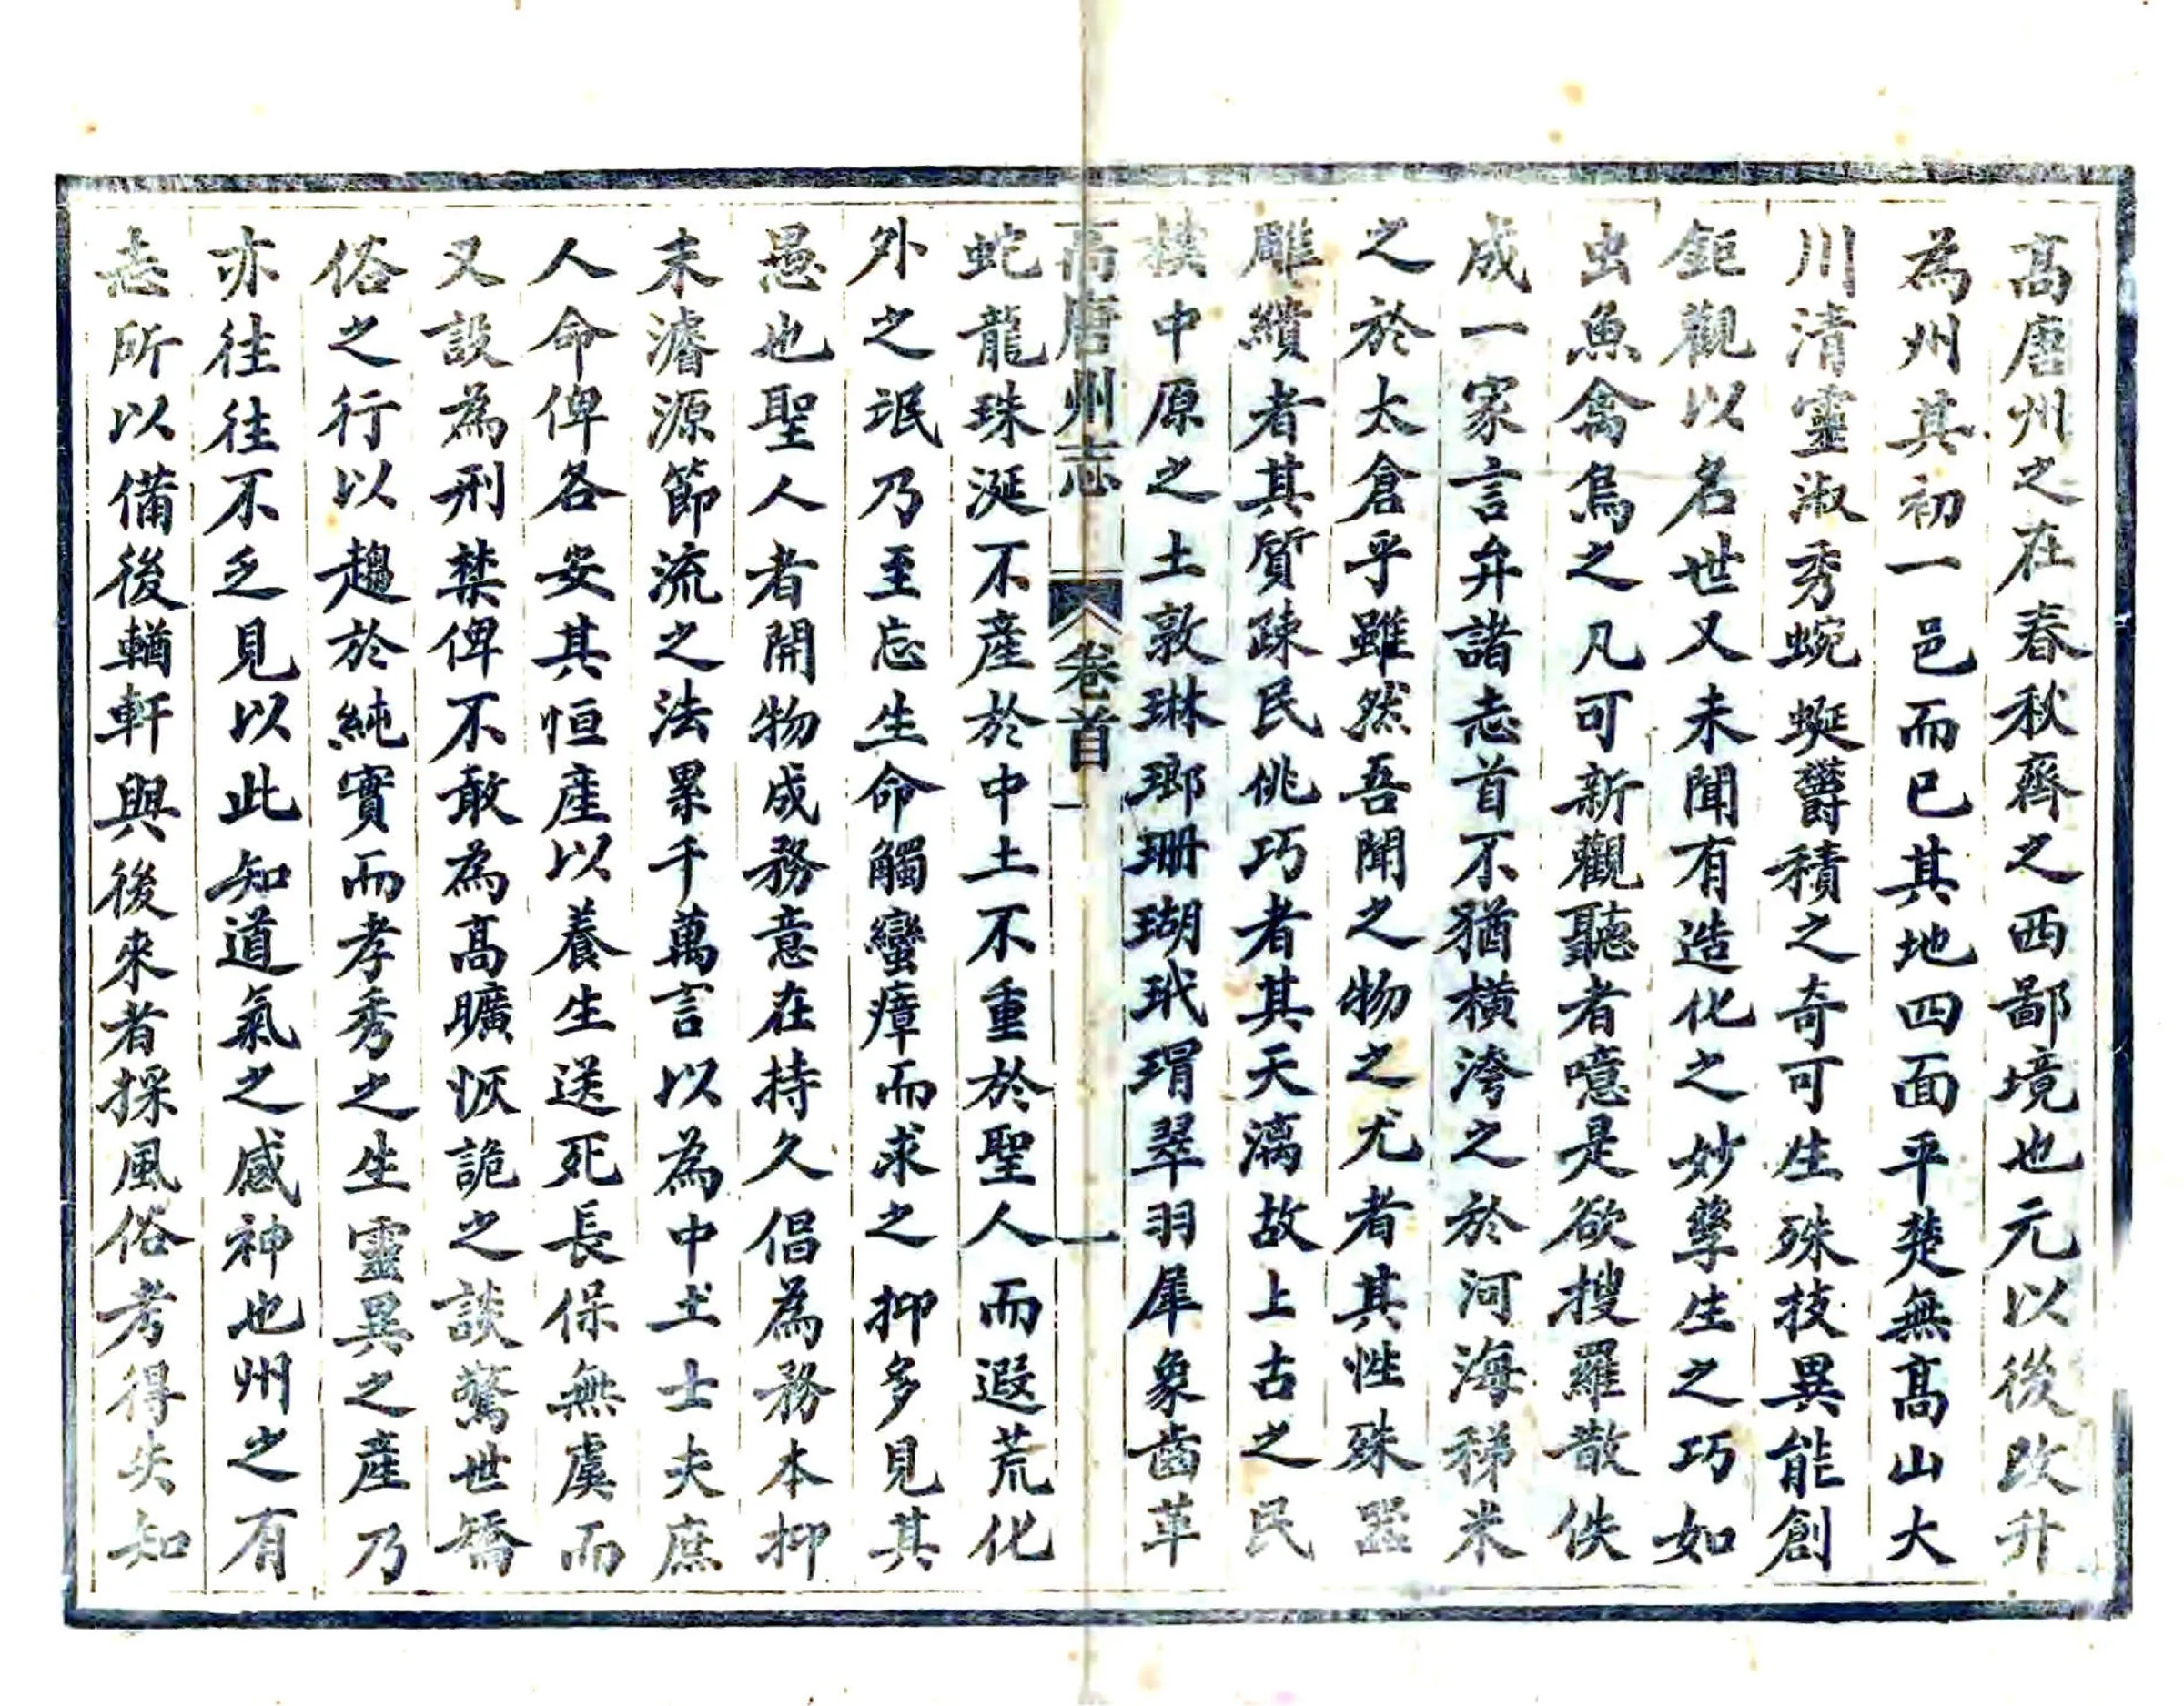 高唐州之在春秋齊之西鄙境也元以後改升
為州其初一邑而已其地四面平楚無高山大
川清靈淑秀蜿蜒欝積之奇可生殊技異能創
鉅觀以名世又未聞有造化之妙孳生之巧如
出魚禽鳥之凡可新觀聽者噫是欲搜羅散佚
成一家言弁諸志首不猶橫洿之於河海稊米
之於太倉乎雖然吾聞之物之尤者其性殊噐
雕繢者其質疎民佻巧者其天漓故上古之民
樸中原之土敦琳瑯珊瑚玳瑁翠羽犀象齒革
高唐州志 卷首 一
蛇龍珠涎不產於中土不重於聖人而遐荒化
外之氓乃至忘生命觸蠻瘴而求之抑多見其
愚也聖人者開物成務意在持久倡為務本抑
末濬源節流之法累千萬言以為中土士夫庶
人命俾各安其恒產以養生送死長保無虞而
又設為刑禁俾不敢為高曠恢詭之談驚世矯
俗之行以趨於純實而孝秀之生靈異之產乃
亦往往不乏見以此知道氣之感神也州之有
志所以備後輶軒與後來者採風俗考得失知